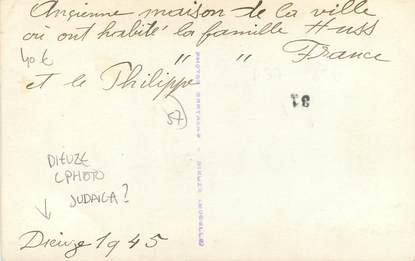 Ancienne maison de la ville
où ont habité la famille Huss
" " France
40 €
et le Philippe
57
31
DIEUZE
CPHOTO
JUDAICA?
Dieuze 1945